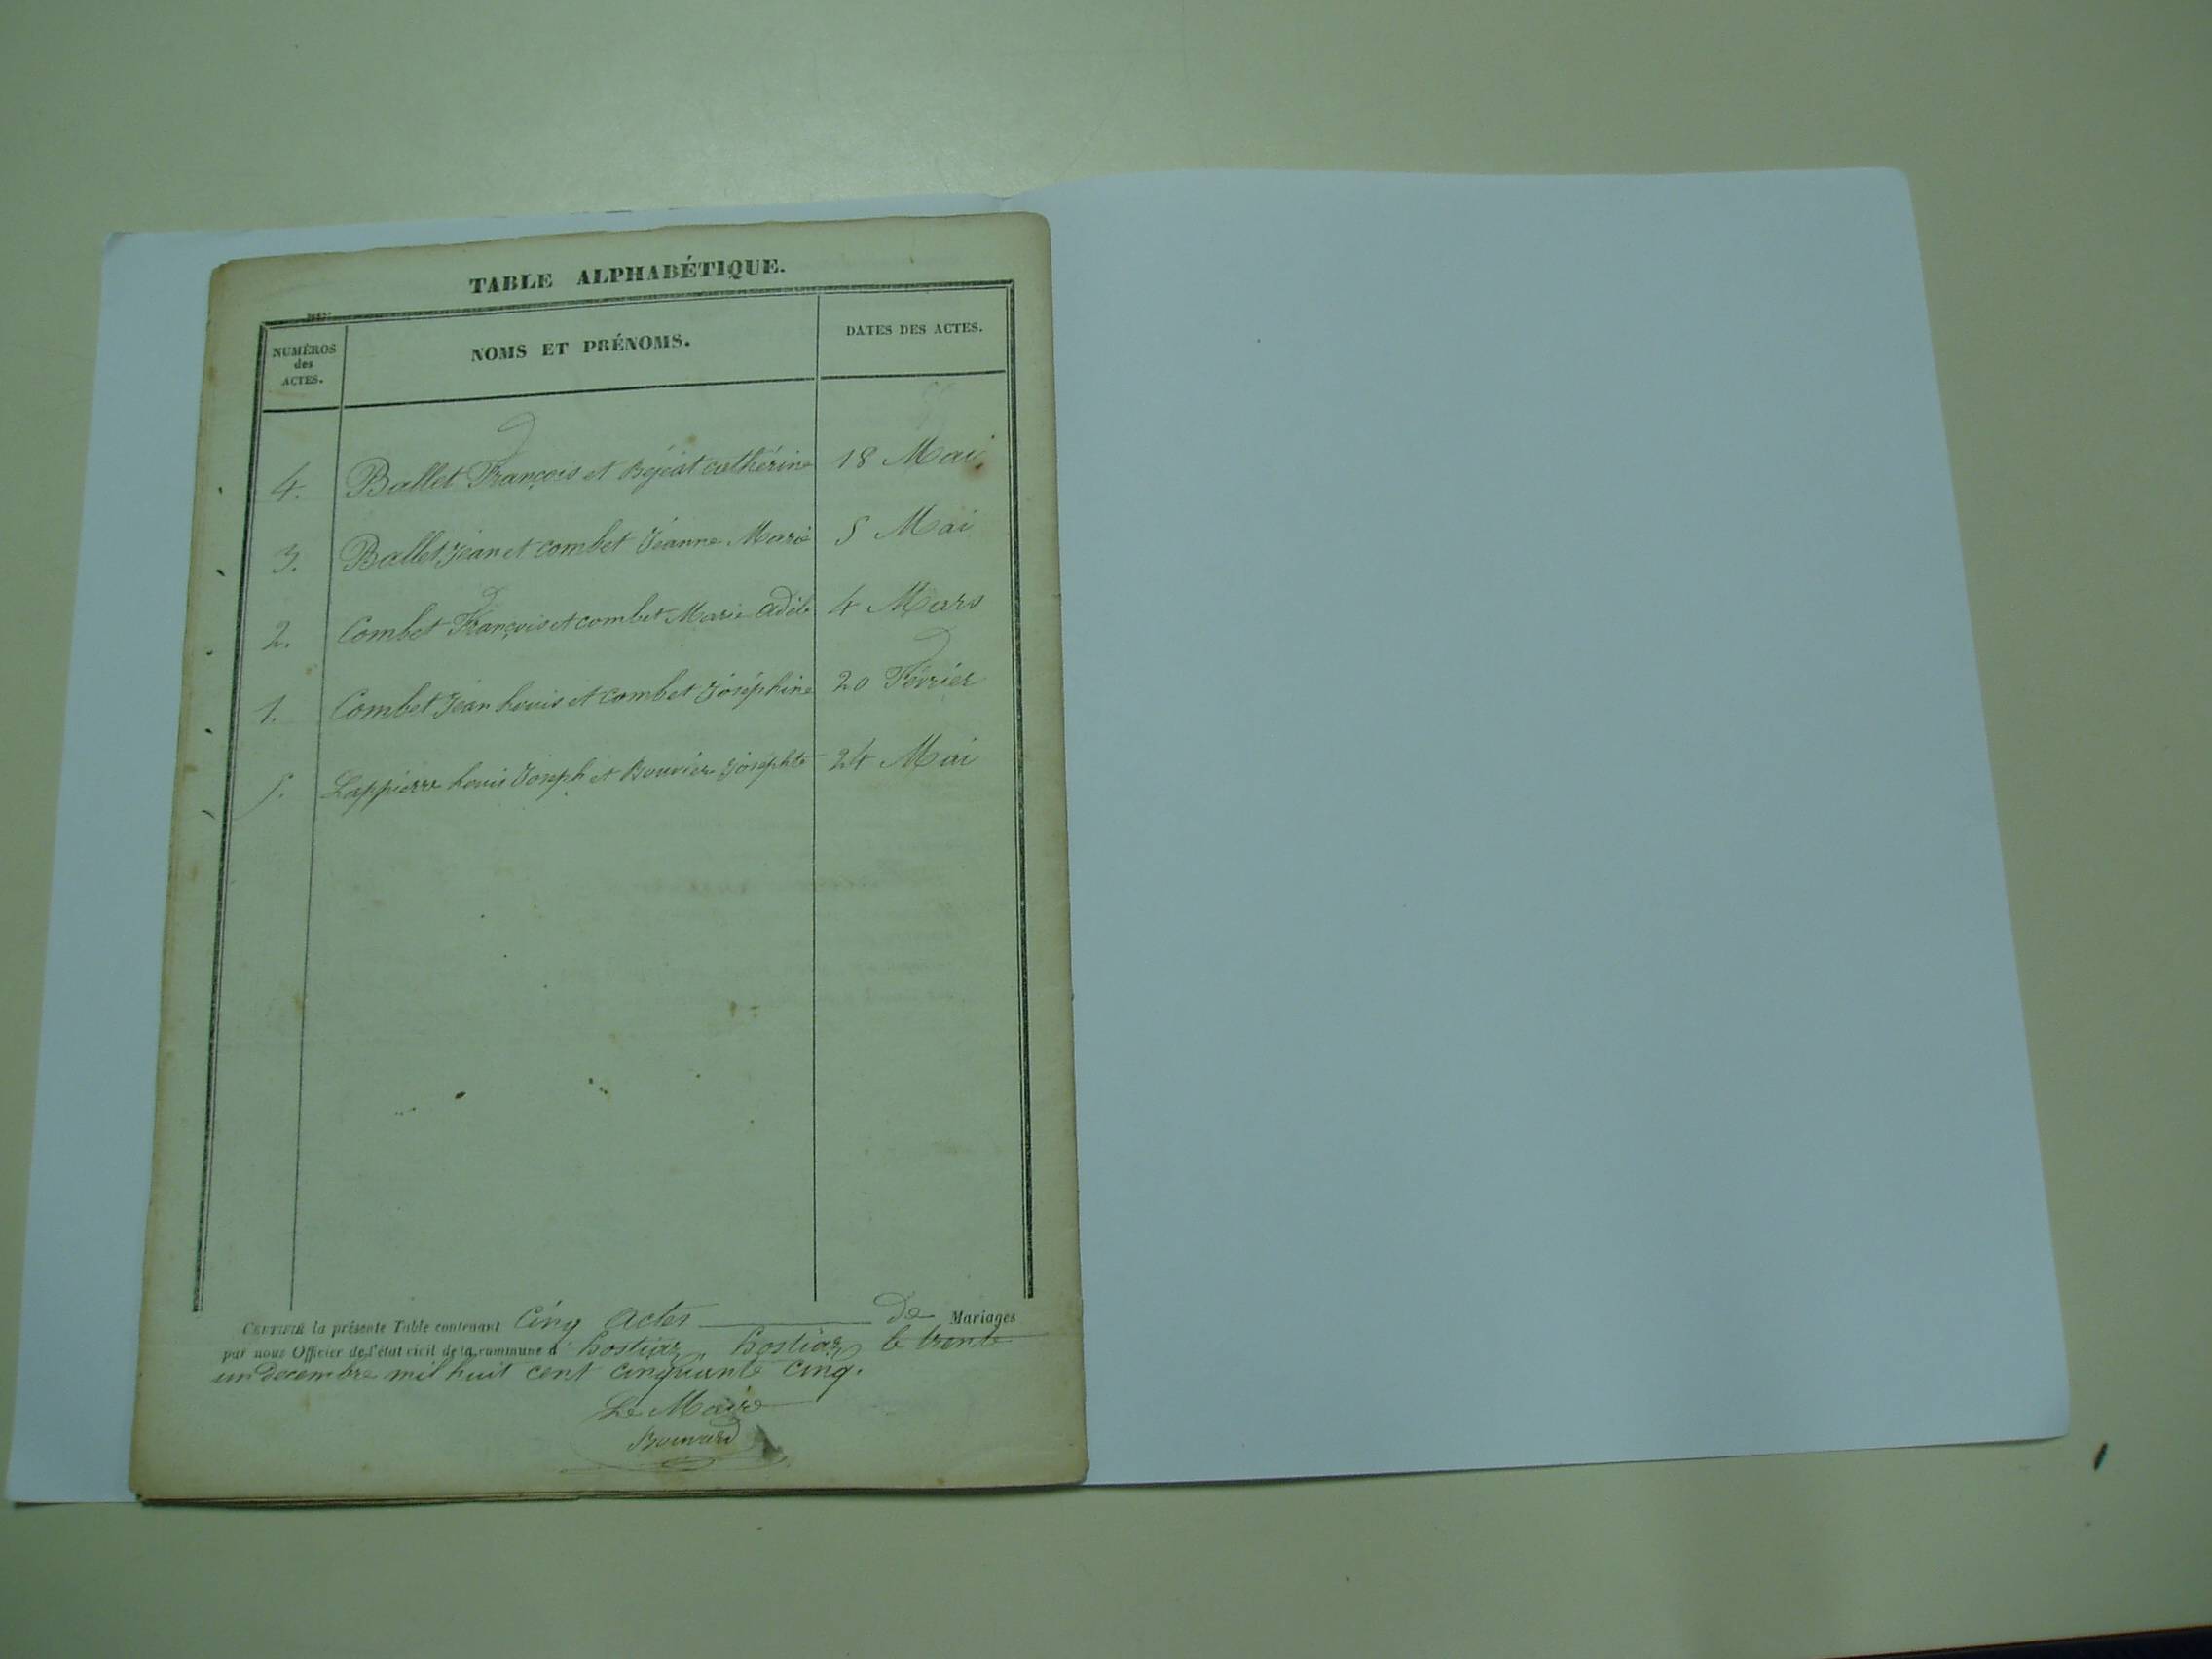 TABLE ALPHABÉTIQUE.
NUMÉROS des ACTES. NOMS ET PRÉNOMS. DATES DES ACTES.
4. Ballet François et Béjeat cathérine 18 Mai
3. Ballet Jéan et combet Jéanne Marie 5 Mai
2. Combet François et combet Marie adèle 4 Mars
1. Combet Jéan Louis et Combet Joséphine 20 Février
5. Lappierre Louis Joseph et Bouvier Josephte 24 Mai
CERTIFIÉ la présente Table contenant Cinq Actes de Mariages
par nous Officier de l'état civil de la commune d' hostiaz, hostiaz le trente
un Decembre mil huit cent cinquante cinq.
Le Maire